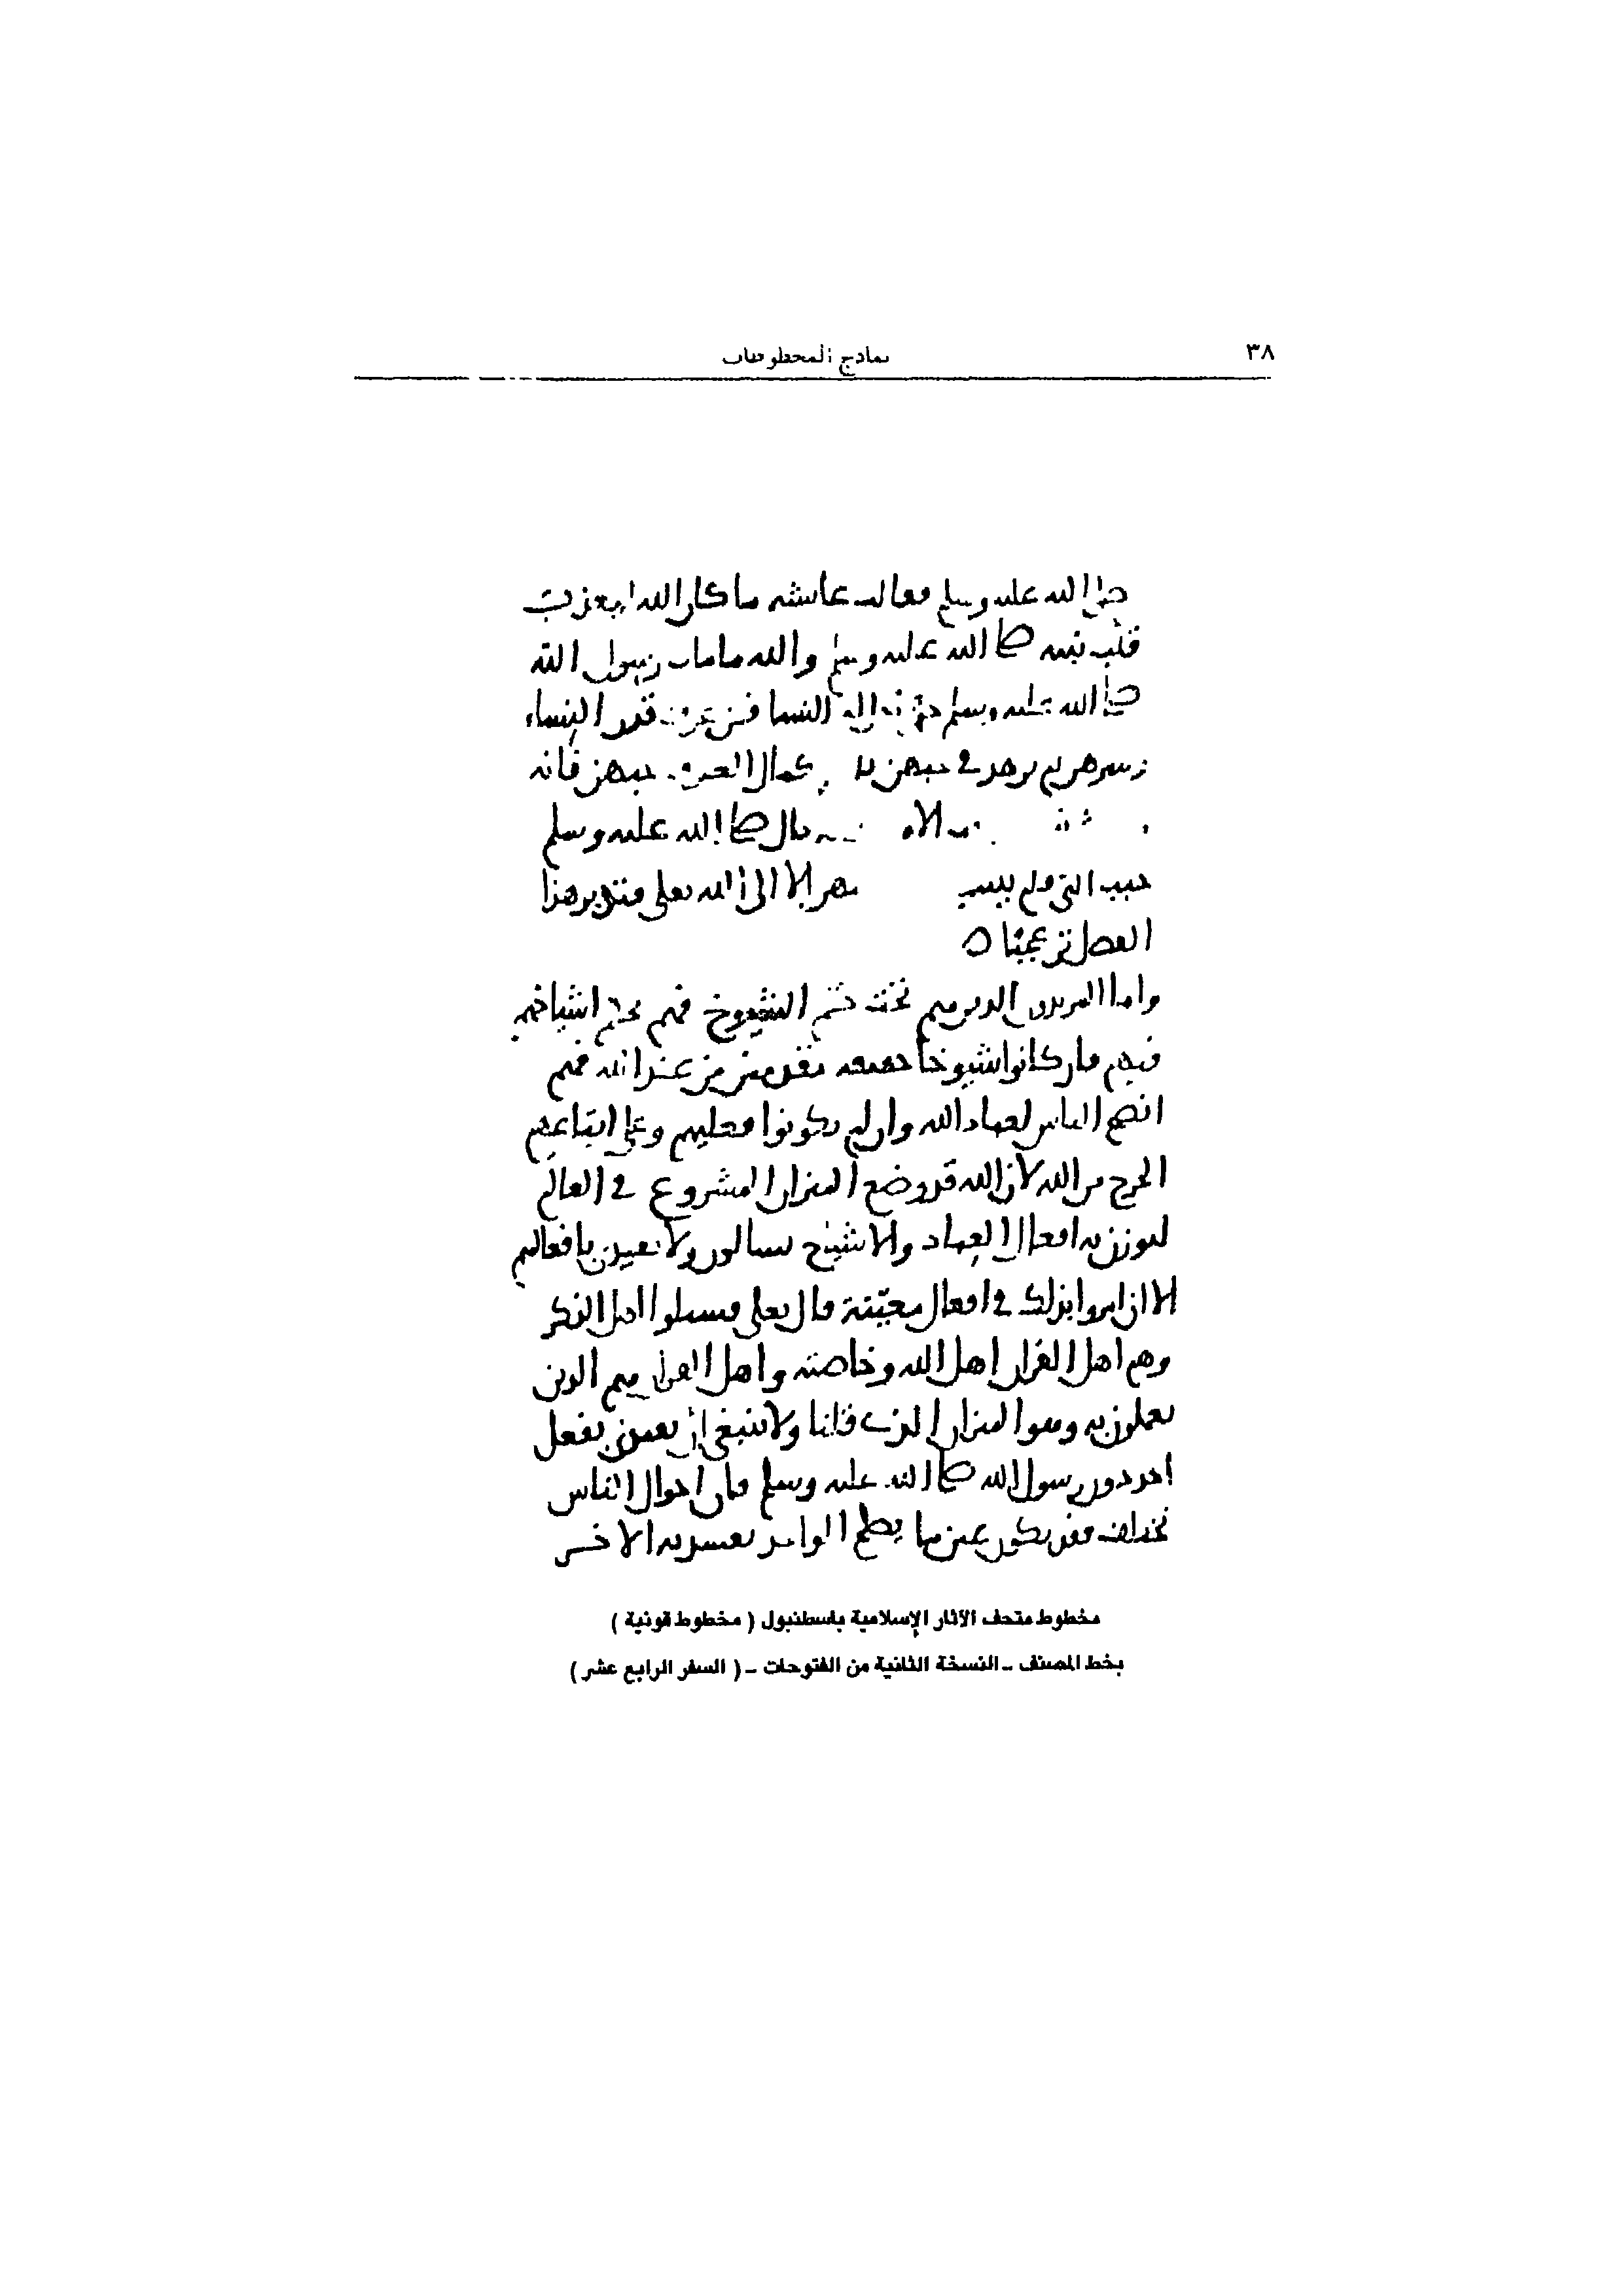 ٣٨
نماذج المخطوطات
صلى الله عليه وسلم فقالت عائشة ما كان الله ليعذب
قلب نبيه صلى الله عليه وسلم والله ما مات رسول الله
صلى الله عليه وسلم حتى له النسا فمن عرف قدر النساء
وسرهن لم يزهد في حبهن بل كمال العرف حبهن فانه
قال صلى الله عليه وسلم
حبب الي ولم الا الى الله تعلى فتدبر هذا
الفصل تر عجبا ه
واما المريدون الذين هم تحت حكم الشيوخ فهم بحكم اشياخهم
فيهم فان كانوا شيوخا حقيقة مقدمين من عند الله فهم
انصح الناس لعباد الله وان لم يكونوا فعليهم وعلى اتباعهم
الحرج من الله لان الله قد وضع الميزان المشروع في العالم
ليوزن به افعال العباد والاشياخ يسالون ولا يقتدى بافعالهم
الا ان امروا بذلك في افعال معينة قال تعلى فسئلوا اهل الذكر
وهم اهل القران اهل الله وخاصته واهل القران هم الذين
يعملون به وهو الميزان الذي قلنا ولا ينبغي ان يقتدى بفعل
احد دون رسول الله صلى الله عليه وسلم فان احوال الناس
تختلف فقد يكون عين ما يصلح الواحد يفسد به الاخر
مخطوط متحف الآثار الإسلامية باسطنبول ( مخطوط قونية )
بخط المصنف - النسخة الثانية من الفتوحات - ( السفر الرابع عشر )